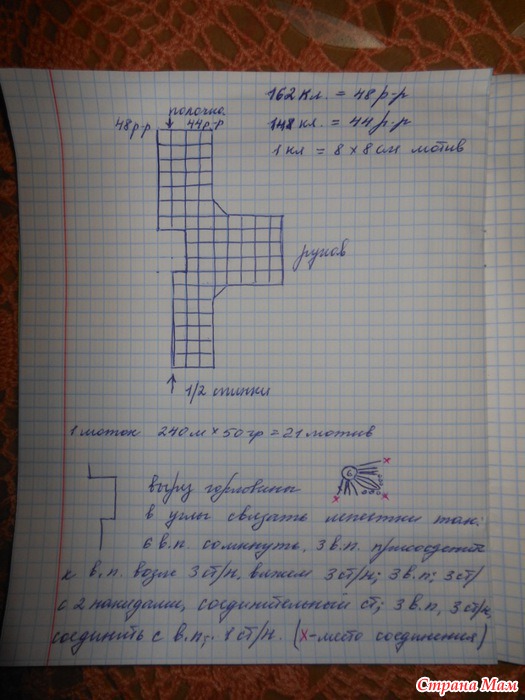 162 кл. = 48 р-р
полочка
48 р-р 44 р-р
148 кл. = 44 р-р
1 кл = 8 х 8 см мотив
рукав
1/2 спинки
1 моток 240 м х 50 гр = 21 мотив
вырез горловины
6
х
х
х
в углы связать лепестки так:
6 в.п. сомкнуть, 3 в.п. присоединить
к в.п. возле 3 ст/н, вяжем 3 ст/н; 3 в.п; 3 ст/
с 2 накидами, соединительный ст; 3 в.п, 3 ст/н,
соединить с в.п; 1 ст/н. (х - место соединения)
Страна Мам